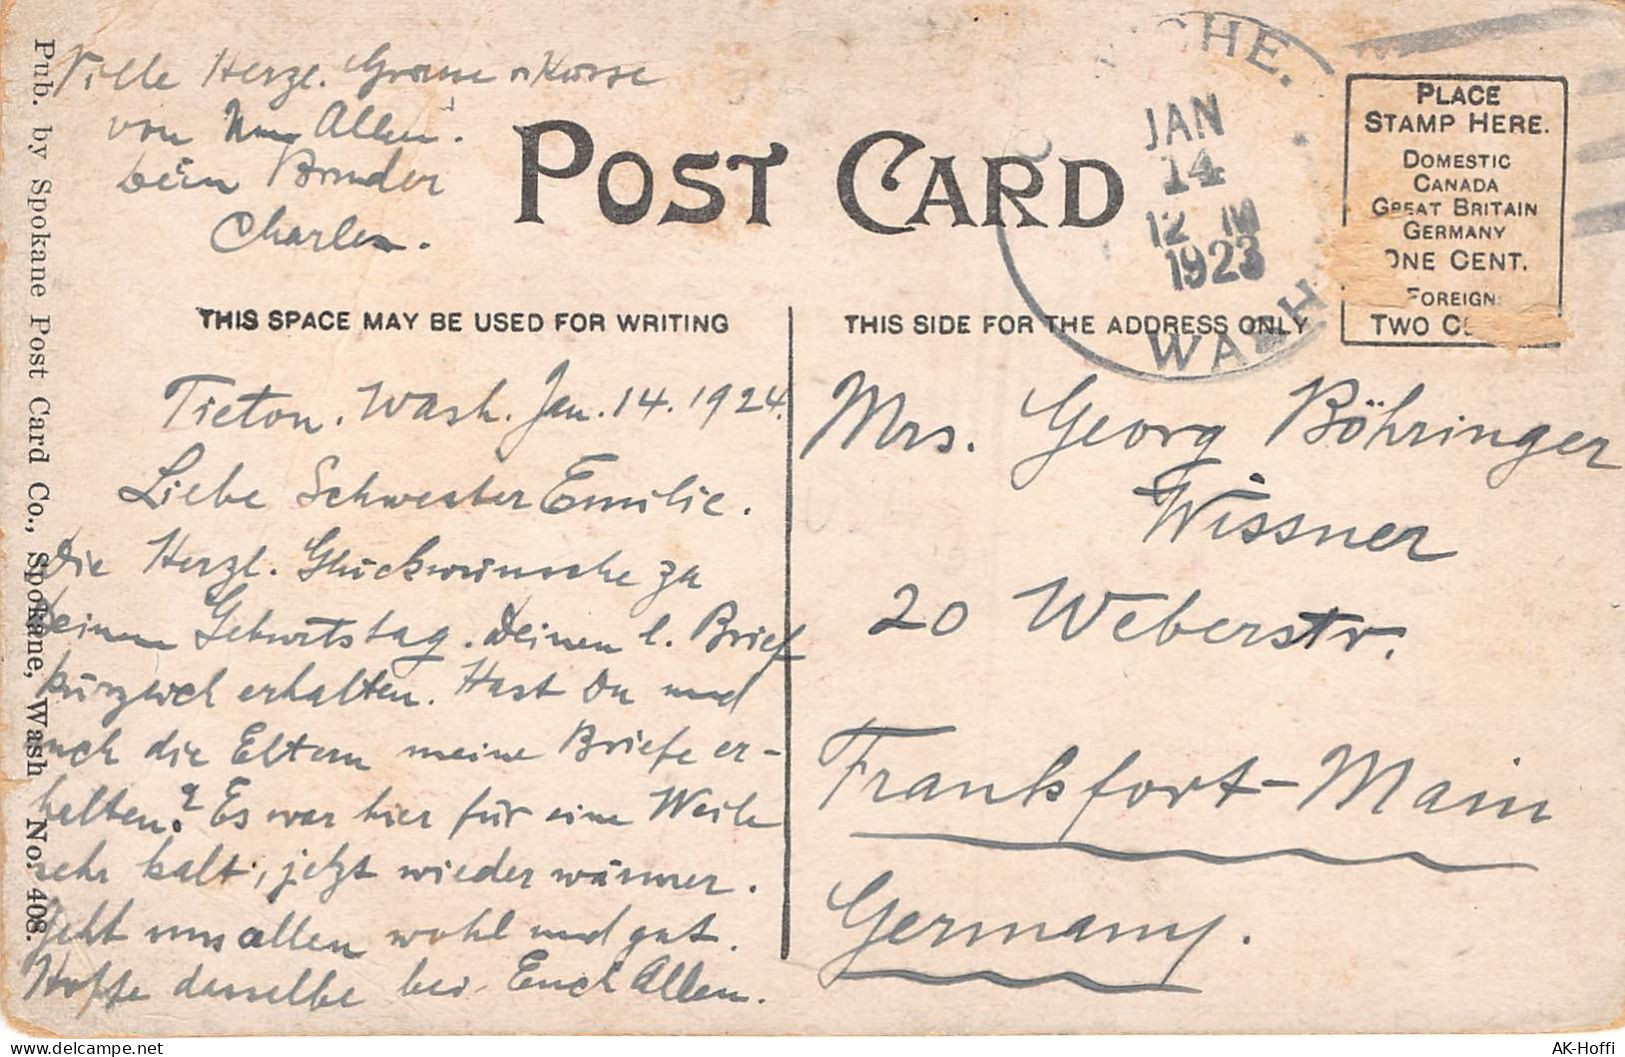 Ville Herzl. Grüsse u Küsse
von uns Allen.
dein Bruder
Charles.
POST CARD
CHE.
JAN
14
12 M
1923
WASH
PLACE
STAMP HERE.
DOMESTIC
CANADA
GREAT BRITAIN
GERMANY
ONE CENT.
FOREIGN
TWO
Pub. by Spokane Post Card Co., Spokane, Wash No. 408.
THIS SPACE MAY BE USED FOR WRITING
Tieton. Wash. Jan. 14. 1924.
Liebe Schwester Emilie.
Die Herzl. Glückwünsche zu
Deinem Geburtstag. Deinen l. Brief
kürzlich erhalten. Hast Du und
auch die Eltern meine Briefe er-
halten? Es war hier für eine Weile
sehr kalt, jetzt wieder wärmer.
Geht uns allen wohl und gut.
Hoffe dasselbe bei Euch Allen.
THIS SIDE FOR THE ADDRESS ONLY
Mrs. Georg Böhringer
Wissner
20 Weberstr.
Frankfort-Main
Germany.
AK-Hoffi